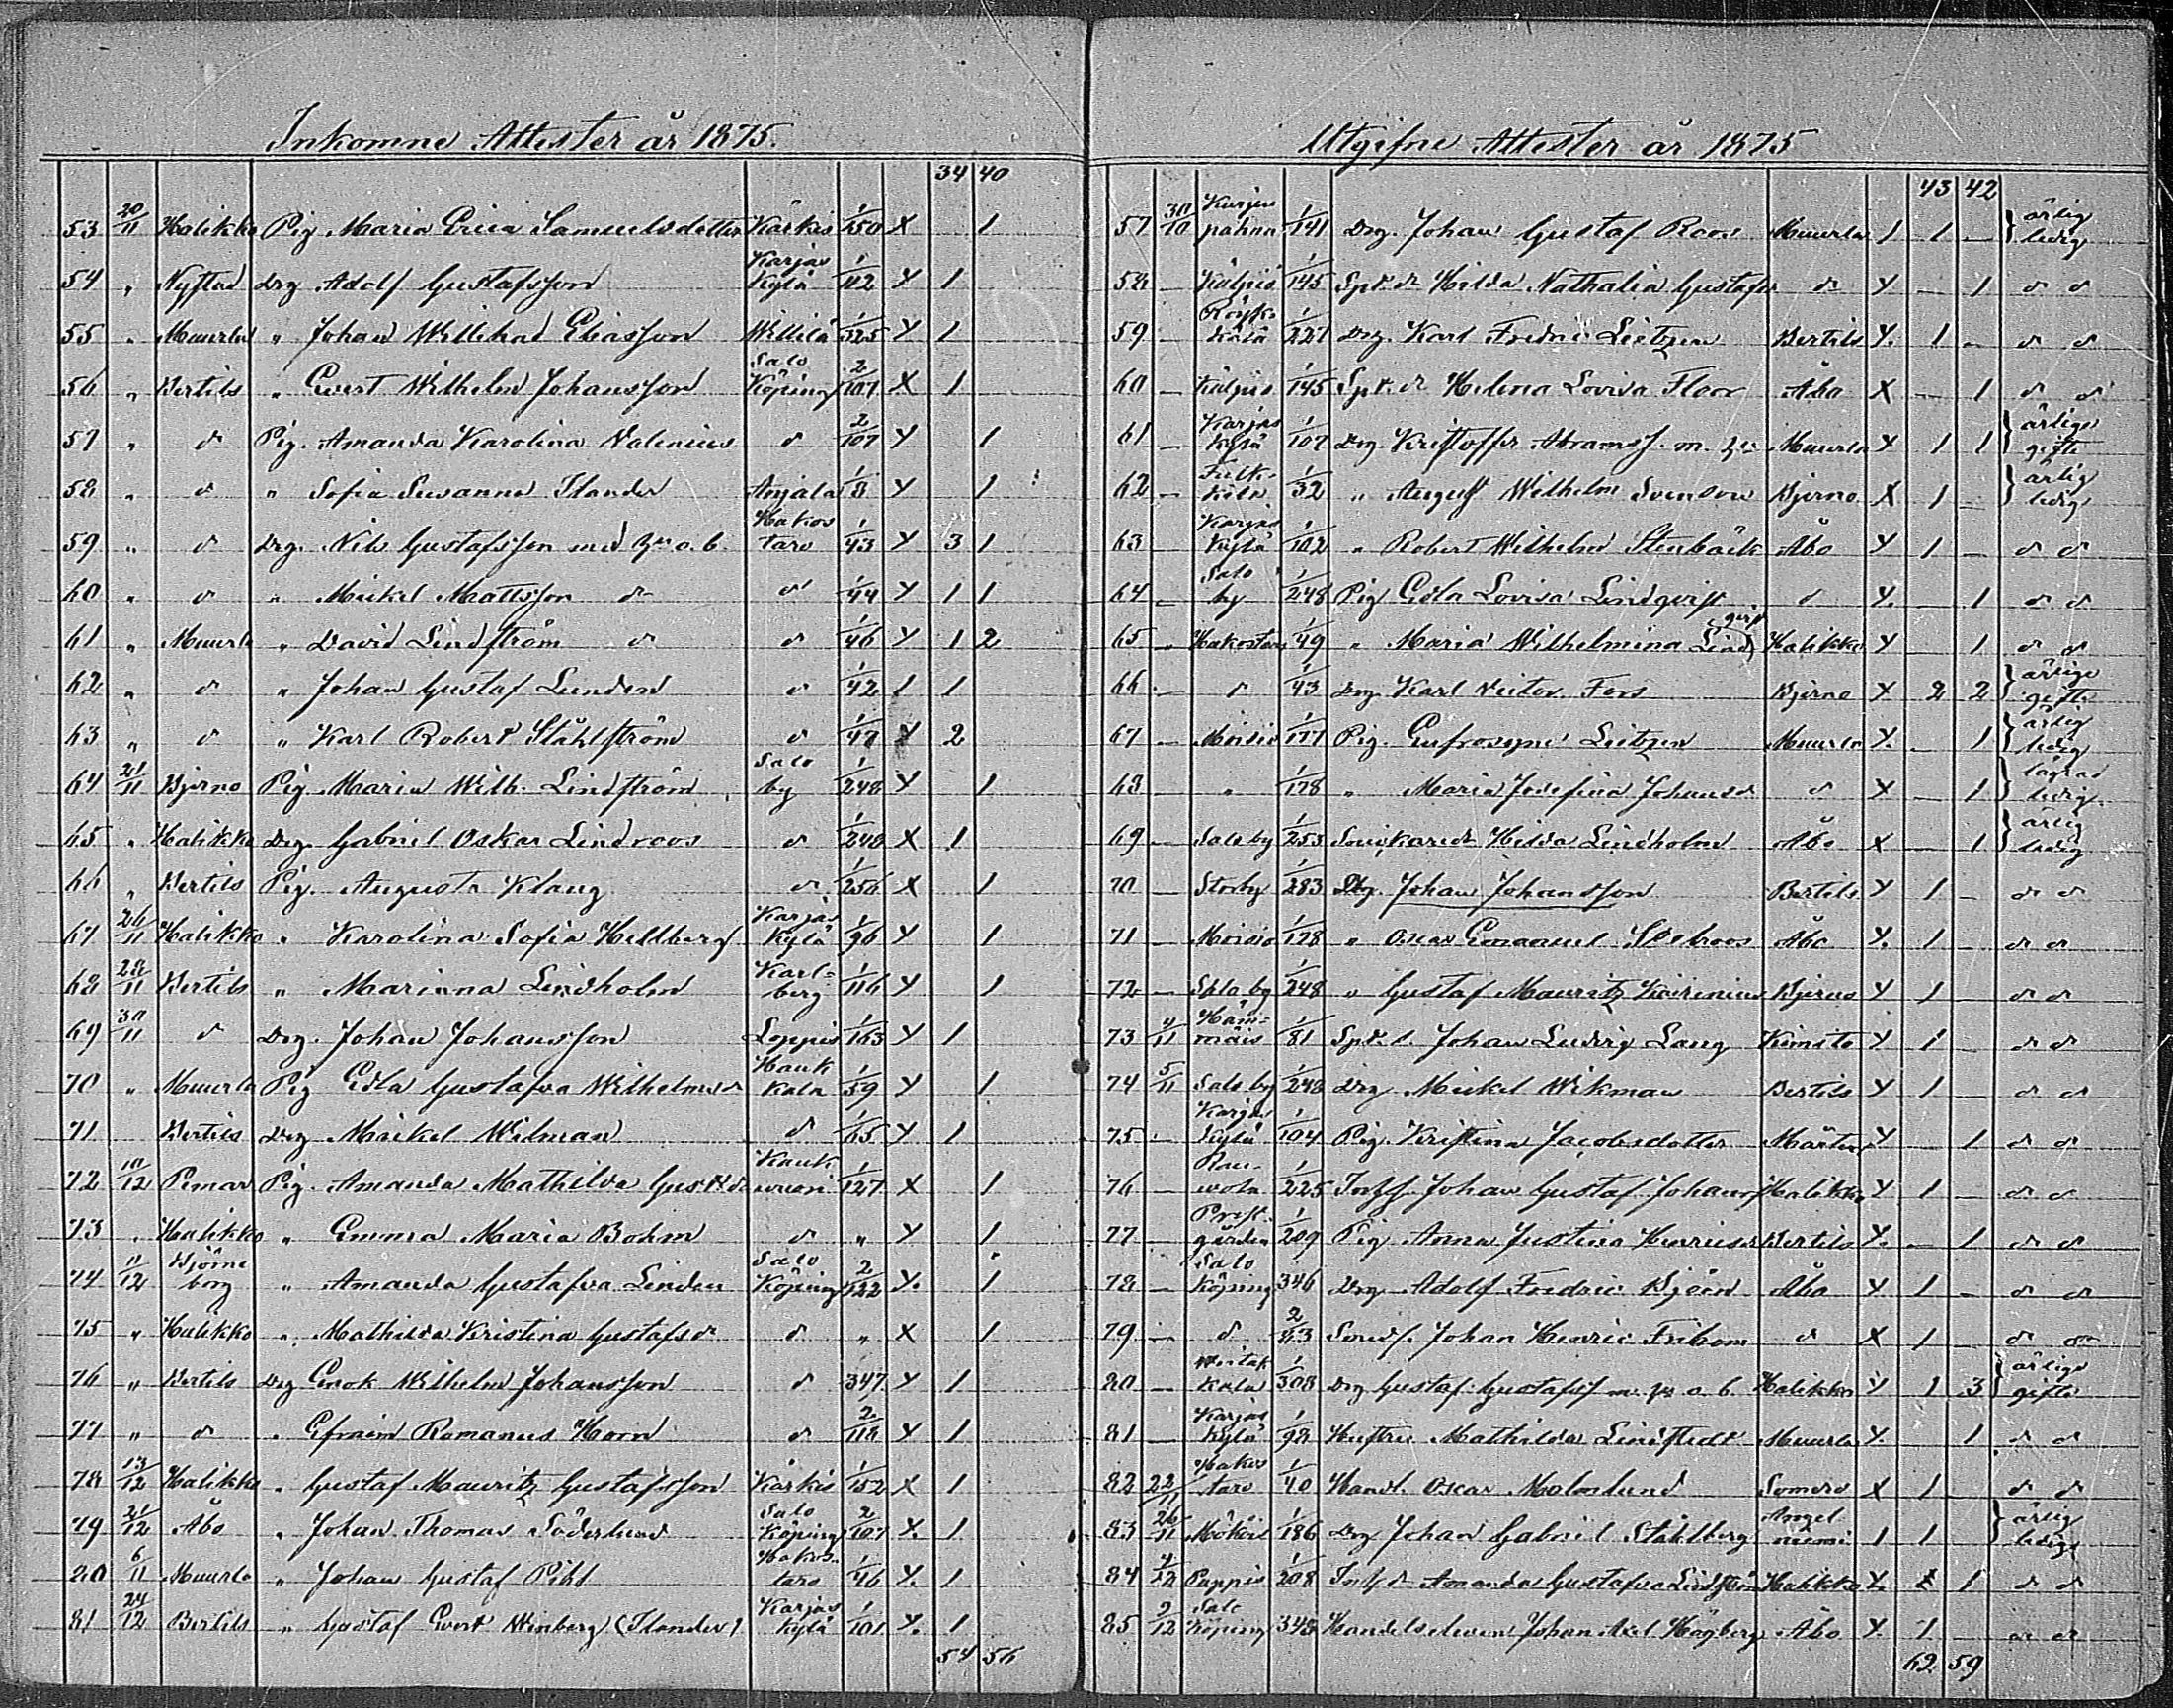 Inkomne Attester år 1875.
34 40
53 20/11 Halikko Pig Maria Erica Samuelsdotter Kärkis 1/150 X 1
54 „ Nystad Drg Adolf Gustafsson Karjas Kylä 1/112 Y 1
55 „ Muurla „ Johan Willehad Eliasson Willilä 1/325 Y 1
56 „ Bertils „ Evert Wilhelm Johansson Salo Köping 2/107 X 1
57 „ d Pig. Amanda Karolina Valenius d 2/107 Y 1
58 „ d „ Sofia Susanna Ilander Anjala 1/8 Y 1
59 „ d Drg. Nils Gustafsson med hu o. b. Hakos taro 1/43 Y 3 1
60 „ d „ Mickel Mattsson d d 1/44 Y 1 1
61 „ Muurla „ David Lindström d d 1/46 Y 1 2
62 „ d „ Johan Gustaf Lunden d 1/42 1 1
63 „ d „ Karl Robert Ståhlström d 1/47 Y 2
64 21/11 Bjerno Pig Maria Wilh. Lindström Salo by 1/248 Y 1
65 „ Halikko Drg Gabriel Oskar Lindroos d 1/248 X 1
66 „ Bertils Pig. Augusta Klang d 1/256 X 1
67 26/11 Halikko „ Karolina Sofia Hellberg Karjas Kylä 1/96 Y 1
68 28/11 Bertils „ Marianna Lindholm Karl- berg 1/116 Y 1
69 30/11 d Drg. Johan Johansson Loppis 1/163 Y 1
70 „ Muurla Pig Edla Gustafva Wilhelmsd Hauk kala 1/59 Y 1
71 Bertils Drg Maikel Wilman d 1/65 Y 1
72 10/12 Pemar Pig. Amanda Mathilda Gust d Kauk wuori 1/127 X 1
73 „ Halikko „ Emma Maria Bohm d „ Y 1
74 11/12 Björne borg „ Amanda Gustafva Linden Salo Köping 2/122 Y. 1
75 „ Halikko „ Mathilda Kristina Gustafsd d „ X 1
76 „ Bertils Drg Enok Wilhelm Johansson d 347 Y 1
77 „ d „ Efraim Romanus Horn d 2/118 Y 1
78 13/12 Halikko „ Gustaf Mauritz Gustafsson Kärkis 1/152 X 1
79 21/12 Åbo „ Johan Thomas Söderlund Salo Köping 2/107 Y. 1
80 6/11 Muurla „ Johan Gustaf Pihl Hakos- taro 1/46 Y. 1
81 24/12 Bertils „ Gustaf Evert Winberg (Ilander) Karjas Kylä 1/101 Y. 1
54 56
Utgifne Attester år 1875
43 42
57 30/10 Kurjen pahna 1/141 Drg. Johan Gustaf Roos Muurla 1 1 — ärlig ledig
58 — Käljiö 1/145 Spt. d. Hilda Nathalia Gustafsd d Y — 1 d d
59 — kälä 1/227 Drg. Karl Fredric Lietzen Bertils Y. 1 — d d
60 — Käljiö 1/145 Spt. d Helena Lovisa Floor Åbo X — 1 d d
61 — Karjas Kylä 1/107 Drg. Kristoffer Abramss. m. hu Muurla Y 1 1 ärliga gifte
62 — 1/32 „ August Wilhelm Svensson Bjerno X 1 — ärlig ledig
63 — Karjas Kylä 1/102 „ Robert Wilhelm Stenbäck Åbo Y 1 — d d
64 — Salo by 1/248 Pig Edla Lovisa Lindqvist d Y. — 1 d d
65 „ Hakostaro 1/49 „ Maria Wilhelmina Lind Halikko Y — 1 d d
66 — d 1/43 Drg Karl Victor Fors Bjerno X 2 2 ärliga gifte
67 — Moisio 1/177 Pig. Eufrosyne Leitzen Muurla Y. — 1 ärlig ledig
68 „ 1/178 „ Maria Josefina Johansd d X — 1 lägrad ledig
69 — Salo by 1/253 Hilda Lindholm Åbo X — 1 ärlig ledig
70 — Storby 1/283 Drg. Johan Johansson Bertils Y 1 — d d
71 — Moisio 1/178 „ Oscar Emanuel Åbo Y. 1 — d d
72 — Salo by 1/248 „ Gustaf Mauritz Bjerno Y 1 — d d
73 4/11 1/81 Johan Ludvig Lang Kimito Y 1 d d
74 5/11 Salo by 1/248 Drg Mickel Wikman Bertils Y 1 — d d
75 — Karjas Kylä 1/104 Pig. Kristina Jacobsdotter Y — 1 d d
76 — wola 1/225 Johan Gustaf Johanss Halikko Y 1 — d d
77 — Prest- gården 1/209 Pig Anna Justina Henriksd Bertils Y. — 1 d d
78 — Salo Köping 346 Drg Adolf Fredric Björn Åbo Y 1 — d d
79 — d 2/83 Johan Henric Fribom d X 1 d d
80 — kala 1/308 Drg Gustaf Gustafss m. hu o. b. Halikko Y 1 3 ärliga gifte
81 — Karjas Kylä 1/98 Hustru Mathilda Lindstedt Muurla Y. 1 d d
82 22/11 Hakos taro 1/40 Handl. Oscar Malmlund Somero X 1 d d
83 26/11 1/186 Drg Johan Gabriel Ståhlberg Angel niemi 1 1 ärlig ledig
84 4/12 Pappis 1/208 Amanda Gustafva Lindström Halikko Y. 1 d d
85 9/12 Salo Köping 343 Handelseleven Johan Axel Högberg Åbo Y. 1 — d d
62 59